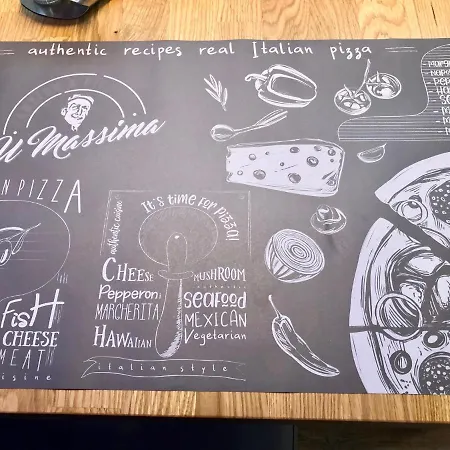 authentic recipes real Italian pizza
Massima
N PIZZA
It's time for pizza!
authentic cuisine
CHEESE
Pepperoni
MARGHERITA
HAWAiian
MUSHROOM
authentic
Seafood
MEXICAN
Vegetarian
italian style
FisH
CHEESE
MEAT
isine